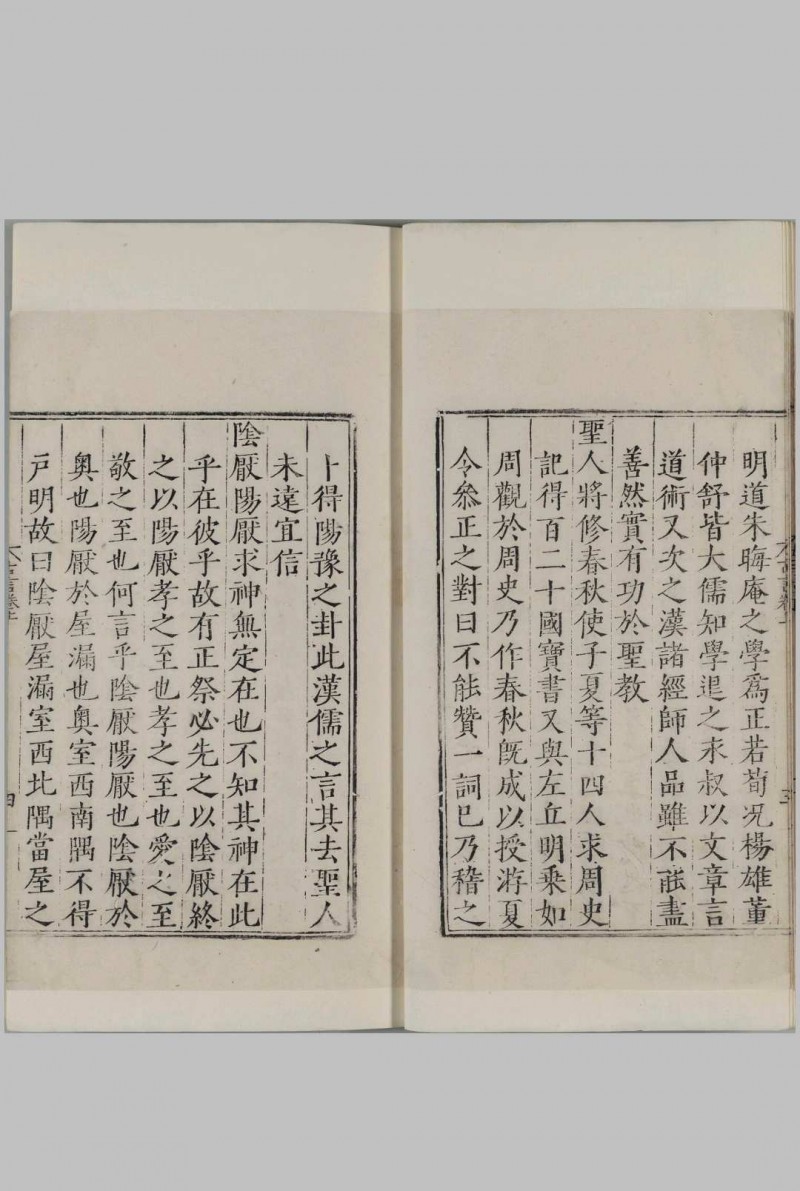 明道朱晦庵之學爲正若荀况楊雄董
仲舒皆大儒知學退之永叔以文章言
道術又次之漢諸經師人品雖不能盡
善然實有功於聖教
聖人將修春秋使子夏等十四人求周史
記得百二十國寶書又與左丘明乘如
周觀於周史乃作春秋既成以授游夏
令叅正之對曰不能贊一詞已乃稽之
卜得陽豫之卦此漢儒之言其去聖人
未遠宜信
陰厭陽厭求神無定在也不知其神在此
乎在彼乎故有正祭必先之以陰厭終
之以陽厭孝之至也孝之至也愛之至
敬之至也何言乎陰厭陽厭也陰厭於
奥也陽厭於屋漏也奥室西南隅不得
戸明故曰陰厭屋漏室西北隅當屋之
四